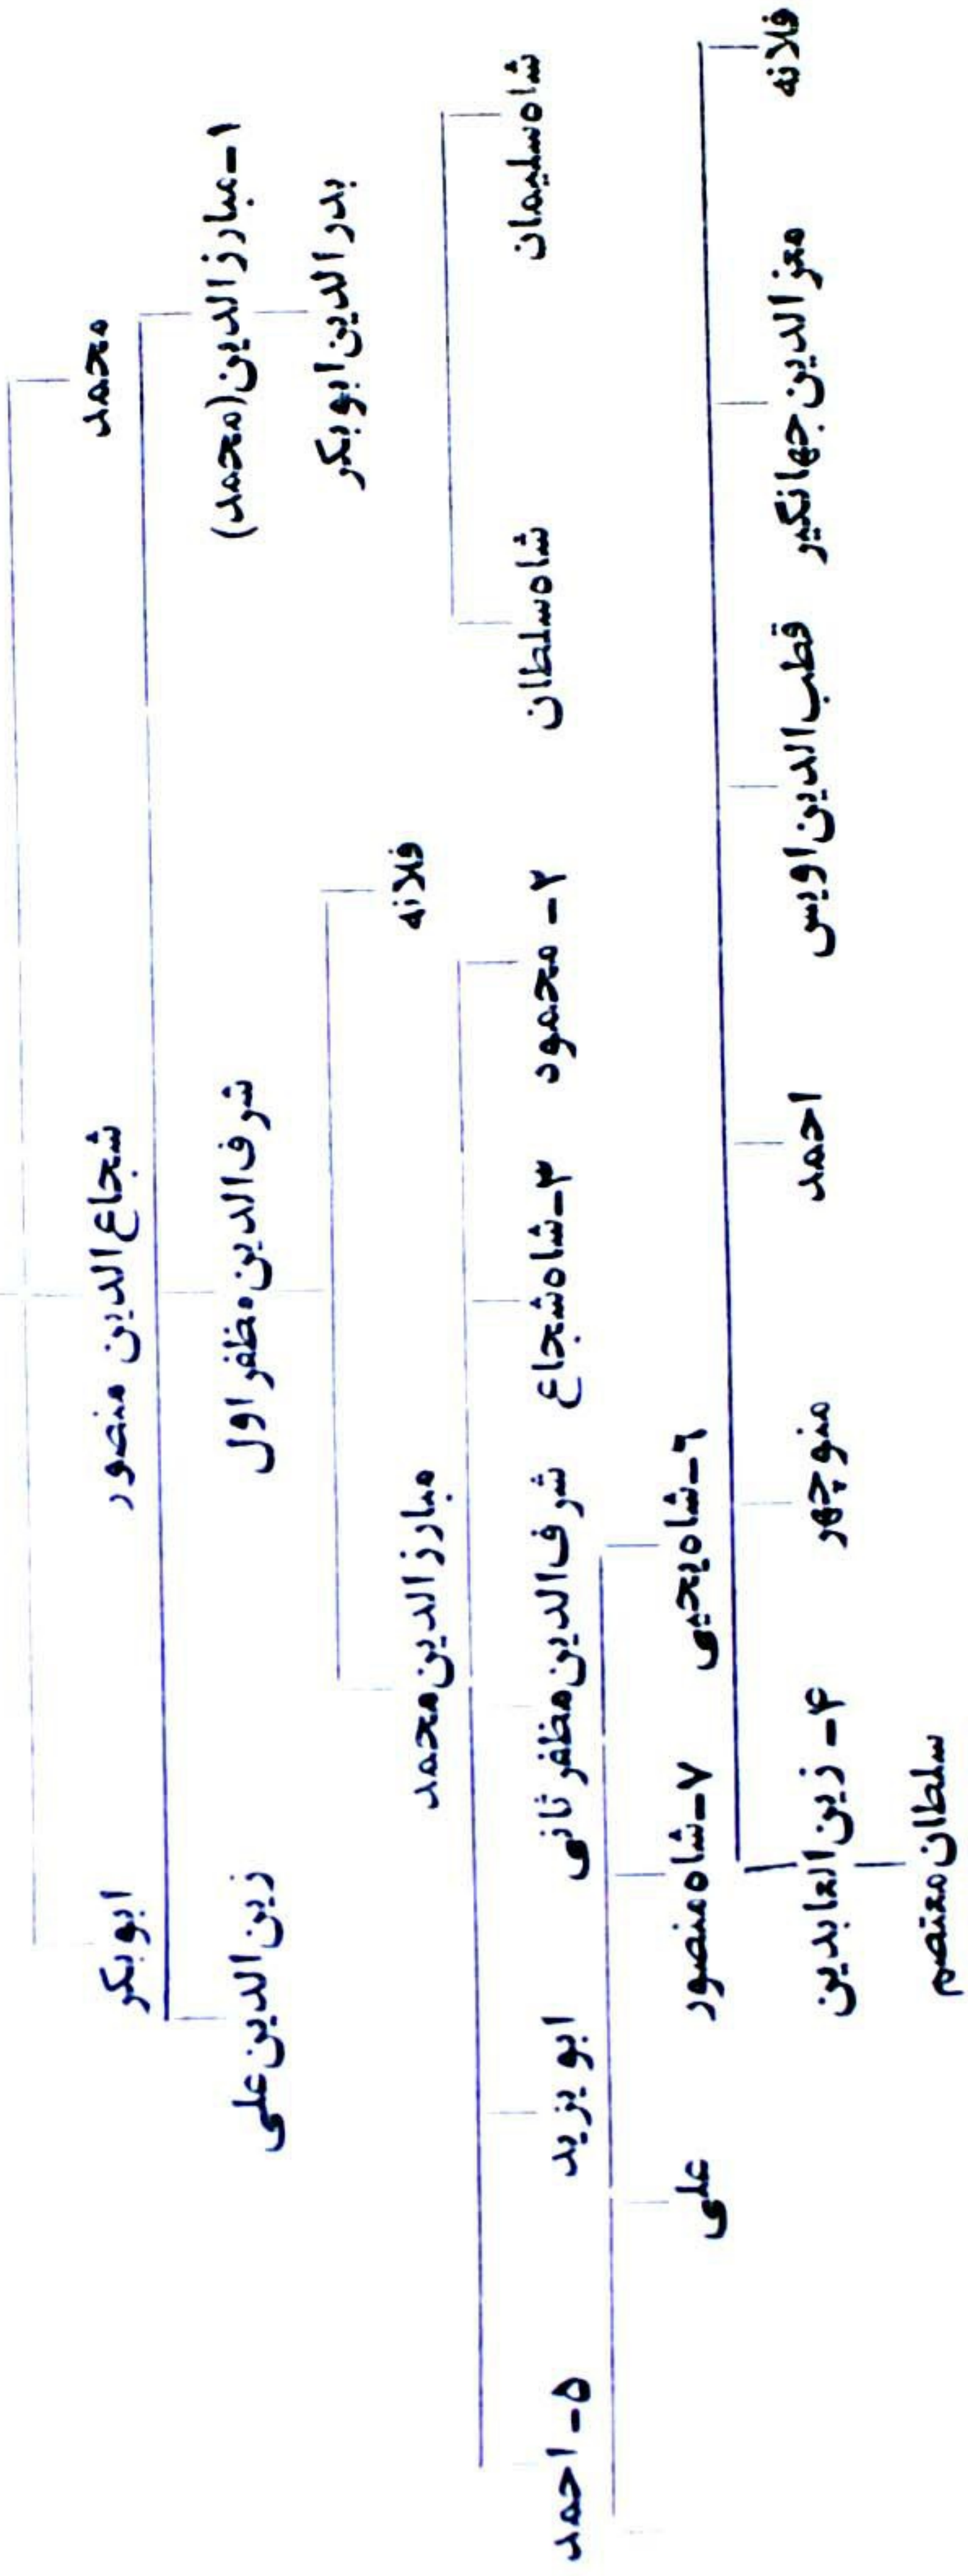 محمد
شجاع الدین منصور
ابوبکر
۱-مبارزالدین(محمد)
شرف الدین مظفر اول
زین الدین علی
بدرالدین ابوبکر
فلانه
مبارزالدین محمد
شاه سلیمان
شاه سلطان
۲- محمود
۳-شاه شجاع
شرف الدین مظفر ثانی
ابو یزید
۵- احمد
۶-شاه یحیی
۷-شاه منصور
علی
فلانه
معزالدین جهانگیر
قطب الدین اویس
احمد
منوچهر
۴- زین العابدین
سلطان معتصم